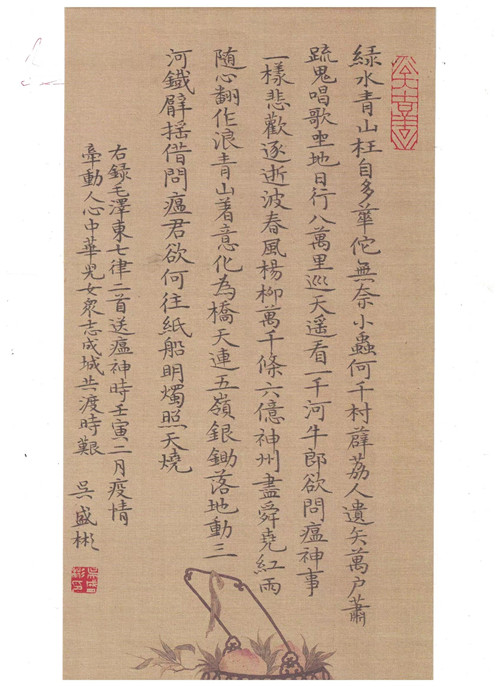 緑水青山枉自多華佗無奈小蟲何千村薜荔人遺矢萬户蕭
疏鬼唱歌坐地日行八萬里巡天遥看一千河牛郎欲問瘟神事
一樣悲歡逐逝波春風楊柳萬千條六億神州盡舜堯紅雨
随心翻作浪青山著意化為橋天連五嶺銀鋤落地動三
河鐡臂摇借問瘟君欲何往紙船明燭照天燒
右録毛澤東七律二首送瘟神時壬寅二月疫情
牽動人心中華兒女衆志成城共渡時艱 吴盛彬